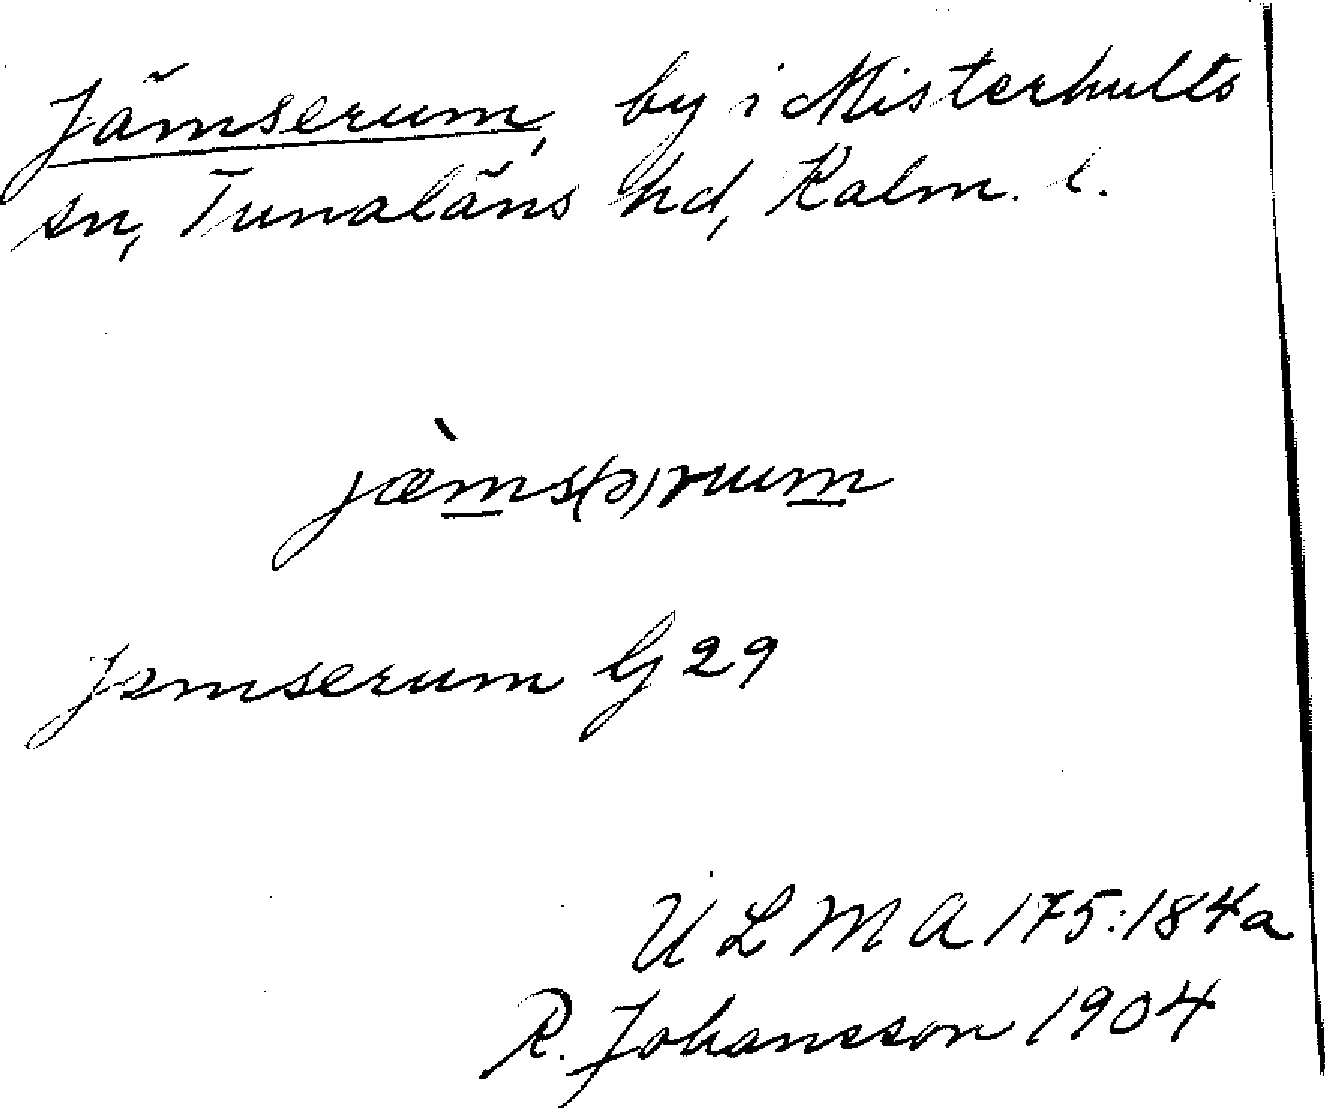 Jämserum, by i Misterhults
sn, Tunaläns hd, Kalm. l.
jæ̀ms(ə)rum
Jemserum G 29
ULMA 175:184a
R. Johansson 1904